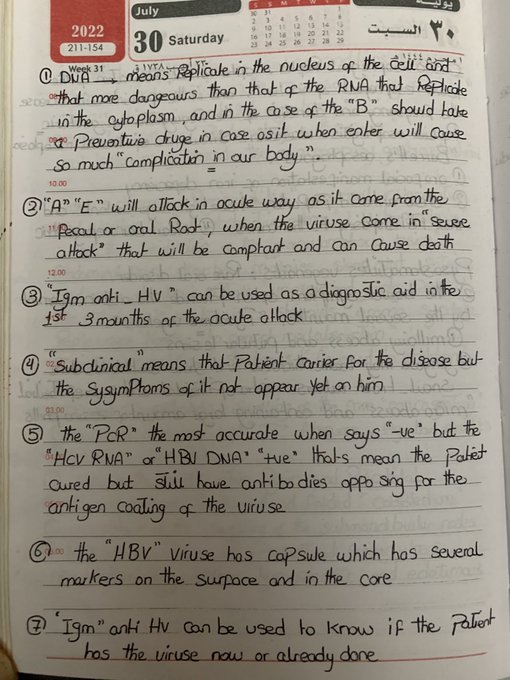 2022
211-154
Week 31
July
30 Saturday
S S M T W T F
30 31
2 3 4 5 6 7 8
9 10 11 12 13 14 15
16 17 18 19 20 21 22
23 24 25 26 27 28 29
يوليـه
٣٠ السبت
① DNA → means Replicate in the nucleus of the cell and
that more dangeours than that of the RNA that Replicate
in the cytoplasm, and in the case of the "B" should take
a Preventive druge in case as it when enter will cause
so much "complication in our body".
10.00
② "A" "E" will attack in acute way as it come from the
fecal or oral Root, when the viruse come in "severe
attack" that will be comptant and can cause death
12.00
③ "Igm anti_HV" can be used as a diagnostic aid in the
1st 3 mounths of the acute attack
④ "Subclinical" means that Patient carrier for the disease but
the Sysymptoms of it not appear yet on him
03.00
⑤ the "PCR" the most accurate when says "-ve" but the
"HCV RNA" or "HBV DNA" "+ve" that-s mean the Patiet
cured but still have antibodies oppo sing for the
antigen coating of the viruse
⑥ the "HBV" viruse has capsule which has several
markers on the surpace and in the core
⑦ "Igm" anti Hv can be used to know if the Patient
has the viruse now or already done